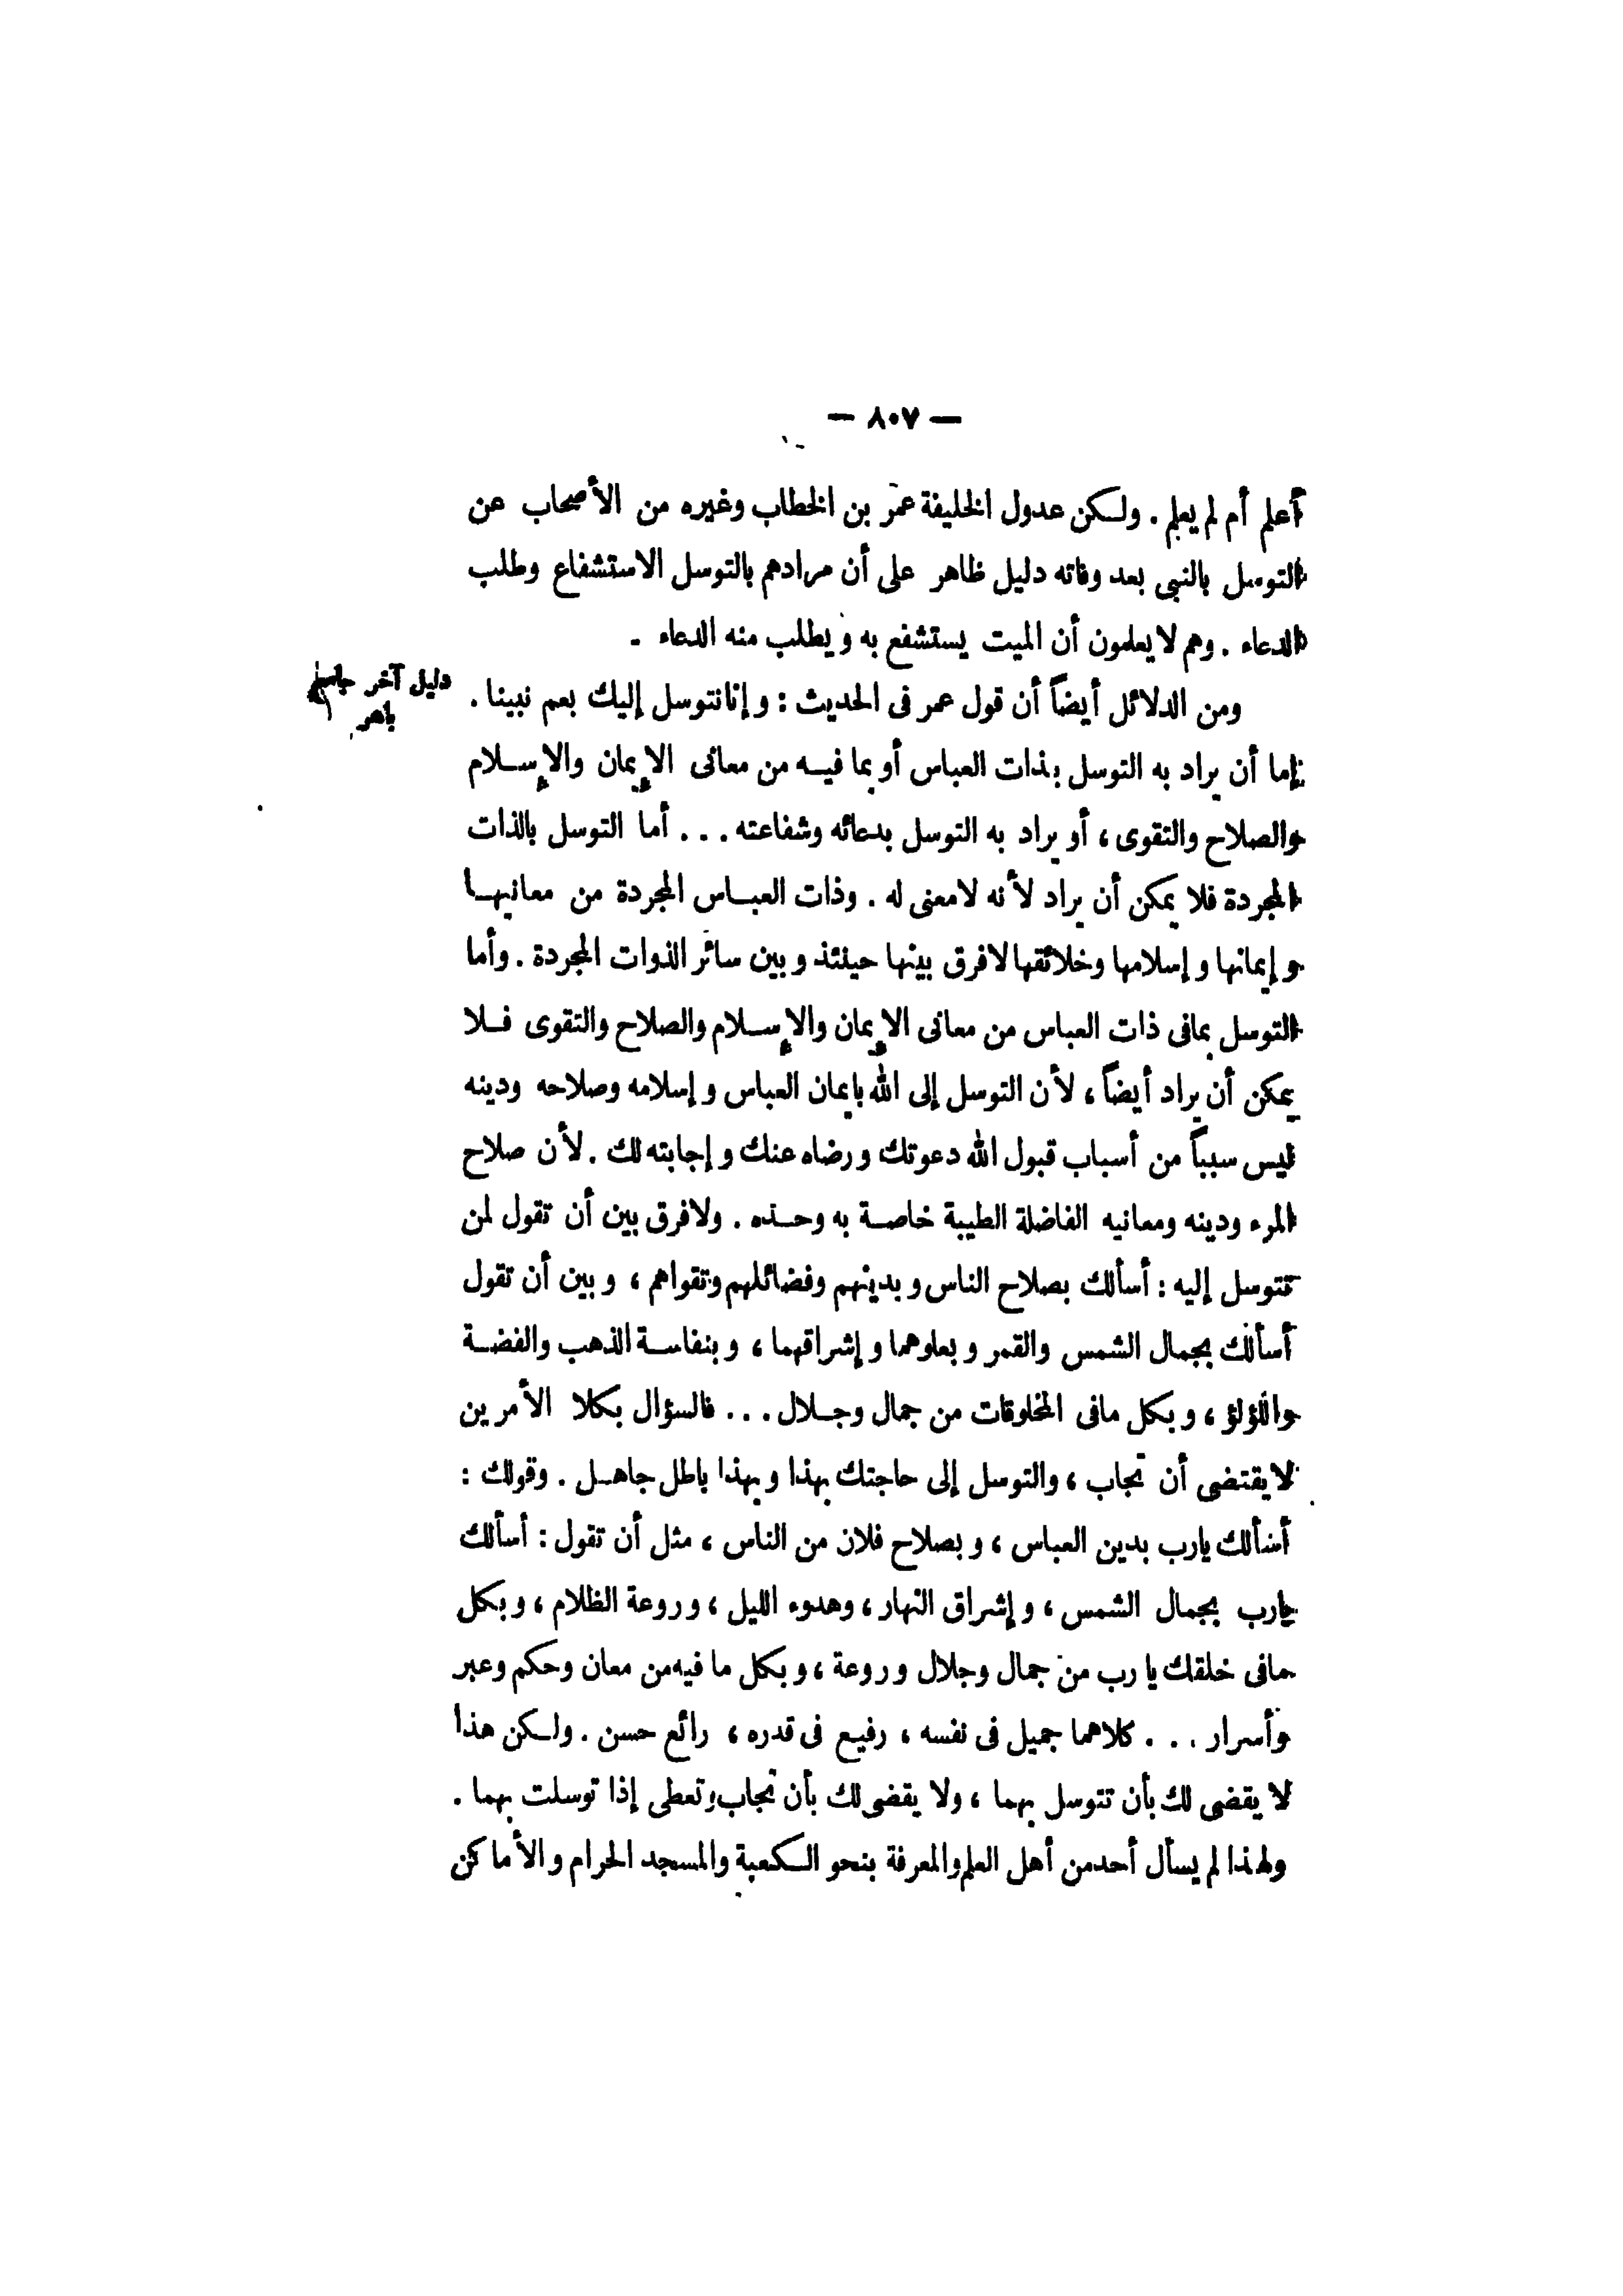 — ٨٠٧ —
أعلم أم لم يعلم . ولكن عدول الخليفة عمر بن الخطاب وغيره من الأصحاب عن
التوسل بالنبى بعد وفاته دليل ظاهر على أن مرادهم بالتوسل الاستشفاع وطلب
الدعاء . وهم لا يعلمون أن الميت يستشفع به ويطلب منه الدعاء .
دليل آخر
باهر
ومن الدلائل أيضاً أن قول عمر فى الحديث : وإنا نتوسل إليك بعم نبينا .
إما أن يراد به التوسل بذات العباس أو بما فيه من معانى الإيمان والإسلام
والصلاح والتقوى ، أو يراد به التوسل بدعائه وشفاعته . . . أما التوسل بالذات
المجردة فلا يمكن أن يراد لأنه لا معنى له . وذات العباس المجردة من معانيها
وإيمانها وإسلامها وخلائقها لا فرق بينها حينئذ وبين سائر الذوات المجردة . وأما
التوسل بما فى ذات العباس من معانى الإيمان والإسلام والصلاح والتقوى فلا
يمكن أن يراد أيضاً ، لأن التوسل إلى الله بإيمان العباس وإسلامه وصلاحه ودينه
ليس سبباً من أسباب قبول الله دعوتك ورضاه عنك وإجابته لك . لأن صلاح
المرء ودينه ومعانيه الفاضلة الطيبة خاصة به وحده . ولا فرق بين أن تقول لمن
تتوسل إليه : أسألك بصلاح الناس وبدينهم وفضائلهم وتقواهم ، وبين أن تقول
أسألك بجمال الشمس والقمر وبعلوهما وإشراقهما ، وبنفاسة الذهب والفضة
واللؤلؤ ، وبكل ما فى المخلوقات من جمال وجلال . . . فالسؤال بكلا الأمرين
لا يقتضى أن تجاب ، والتوسل إلى حاجتك بهذا وبهذا باطل جاهل . وقولك :
أسألك يارب بدين العباس ، وبصلاح فلان من الناس ، مثل أن تقول : أسألك
يارب بجمال الشمس ، وإشراق النهار ، وهدوء الليل ، وروعة الظلام ، وبكل
ما فى خلقك يا رب من جمال وجلال وروعة ، وبكل ما فيه من معان وحكم وعبر
وأسرار . . . كلاهما جميل فى نفسه ، رفيع فى قدره ، رائع حسن . ولكن هذا
لا يقضى لك بأن تتوسل بهما ، ولا يقضى لك بأن تجاب وتعطى إذا توسلت بهما .
ولهذا لم يسأل أحد من أهل العلم والمعرفة بنحو الكعبة والمسجد الحرام والأماكن